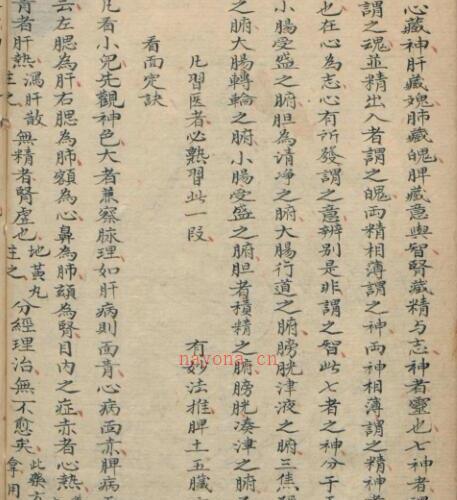 心藏神肝藏魂肺藏魄脾藏意與智腎藏精与志神者靈也七神者理
謂之魂並精出入者謂之魄両精相薄謂之神両神相薄謂之精神
也在心為志心有所發謂之意辨别是非謂之智此七者之神分于五
小腸受盛之腑胆為清净之腑大腸行道之腑膀胱津液之腑三焦
之腑大腸轉輪之腑小腸受盛之腑胆者積精之腑膀胱凑津之腑
凡習医者必熟習此一段 有妙法推脾土五臟
看面定訣
凡看小兒先觀神色大者兼察脉理如肝病則面青心病面赤脾病
云左腮為肝右腮為肺額為心鼻為肺頦為腎目内之症赤者心热
青者肝热 瀉肝散主之 無精者腎虚也 地黄丸主之 分經理治無不愈矣 此藥方
nayona.cn